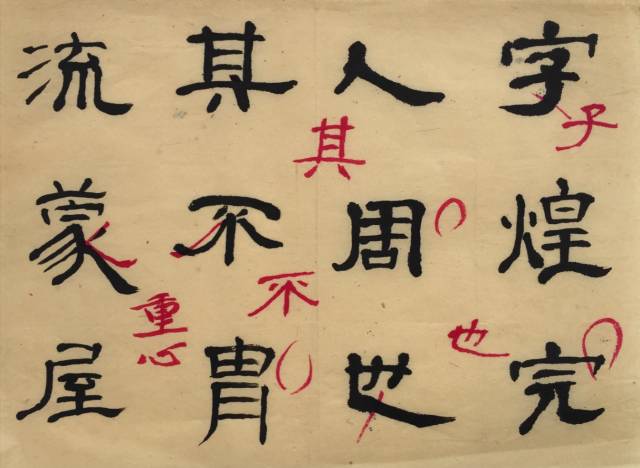 字煌完
人周也
其不胄
流蒙屋
子
其
也
不
重心